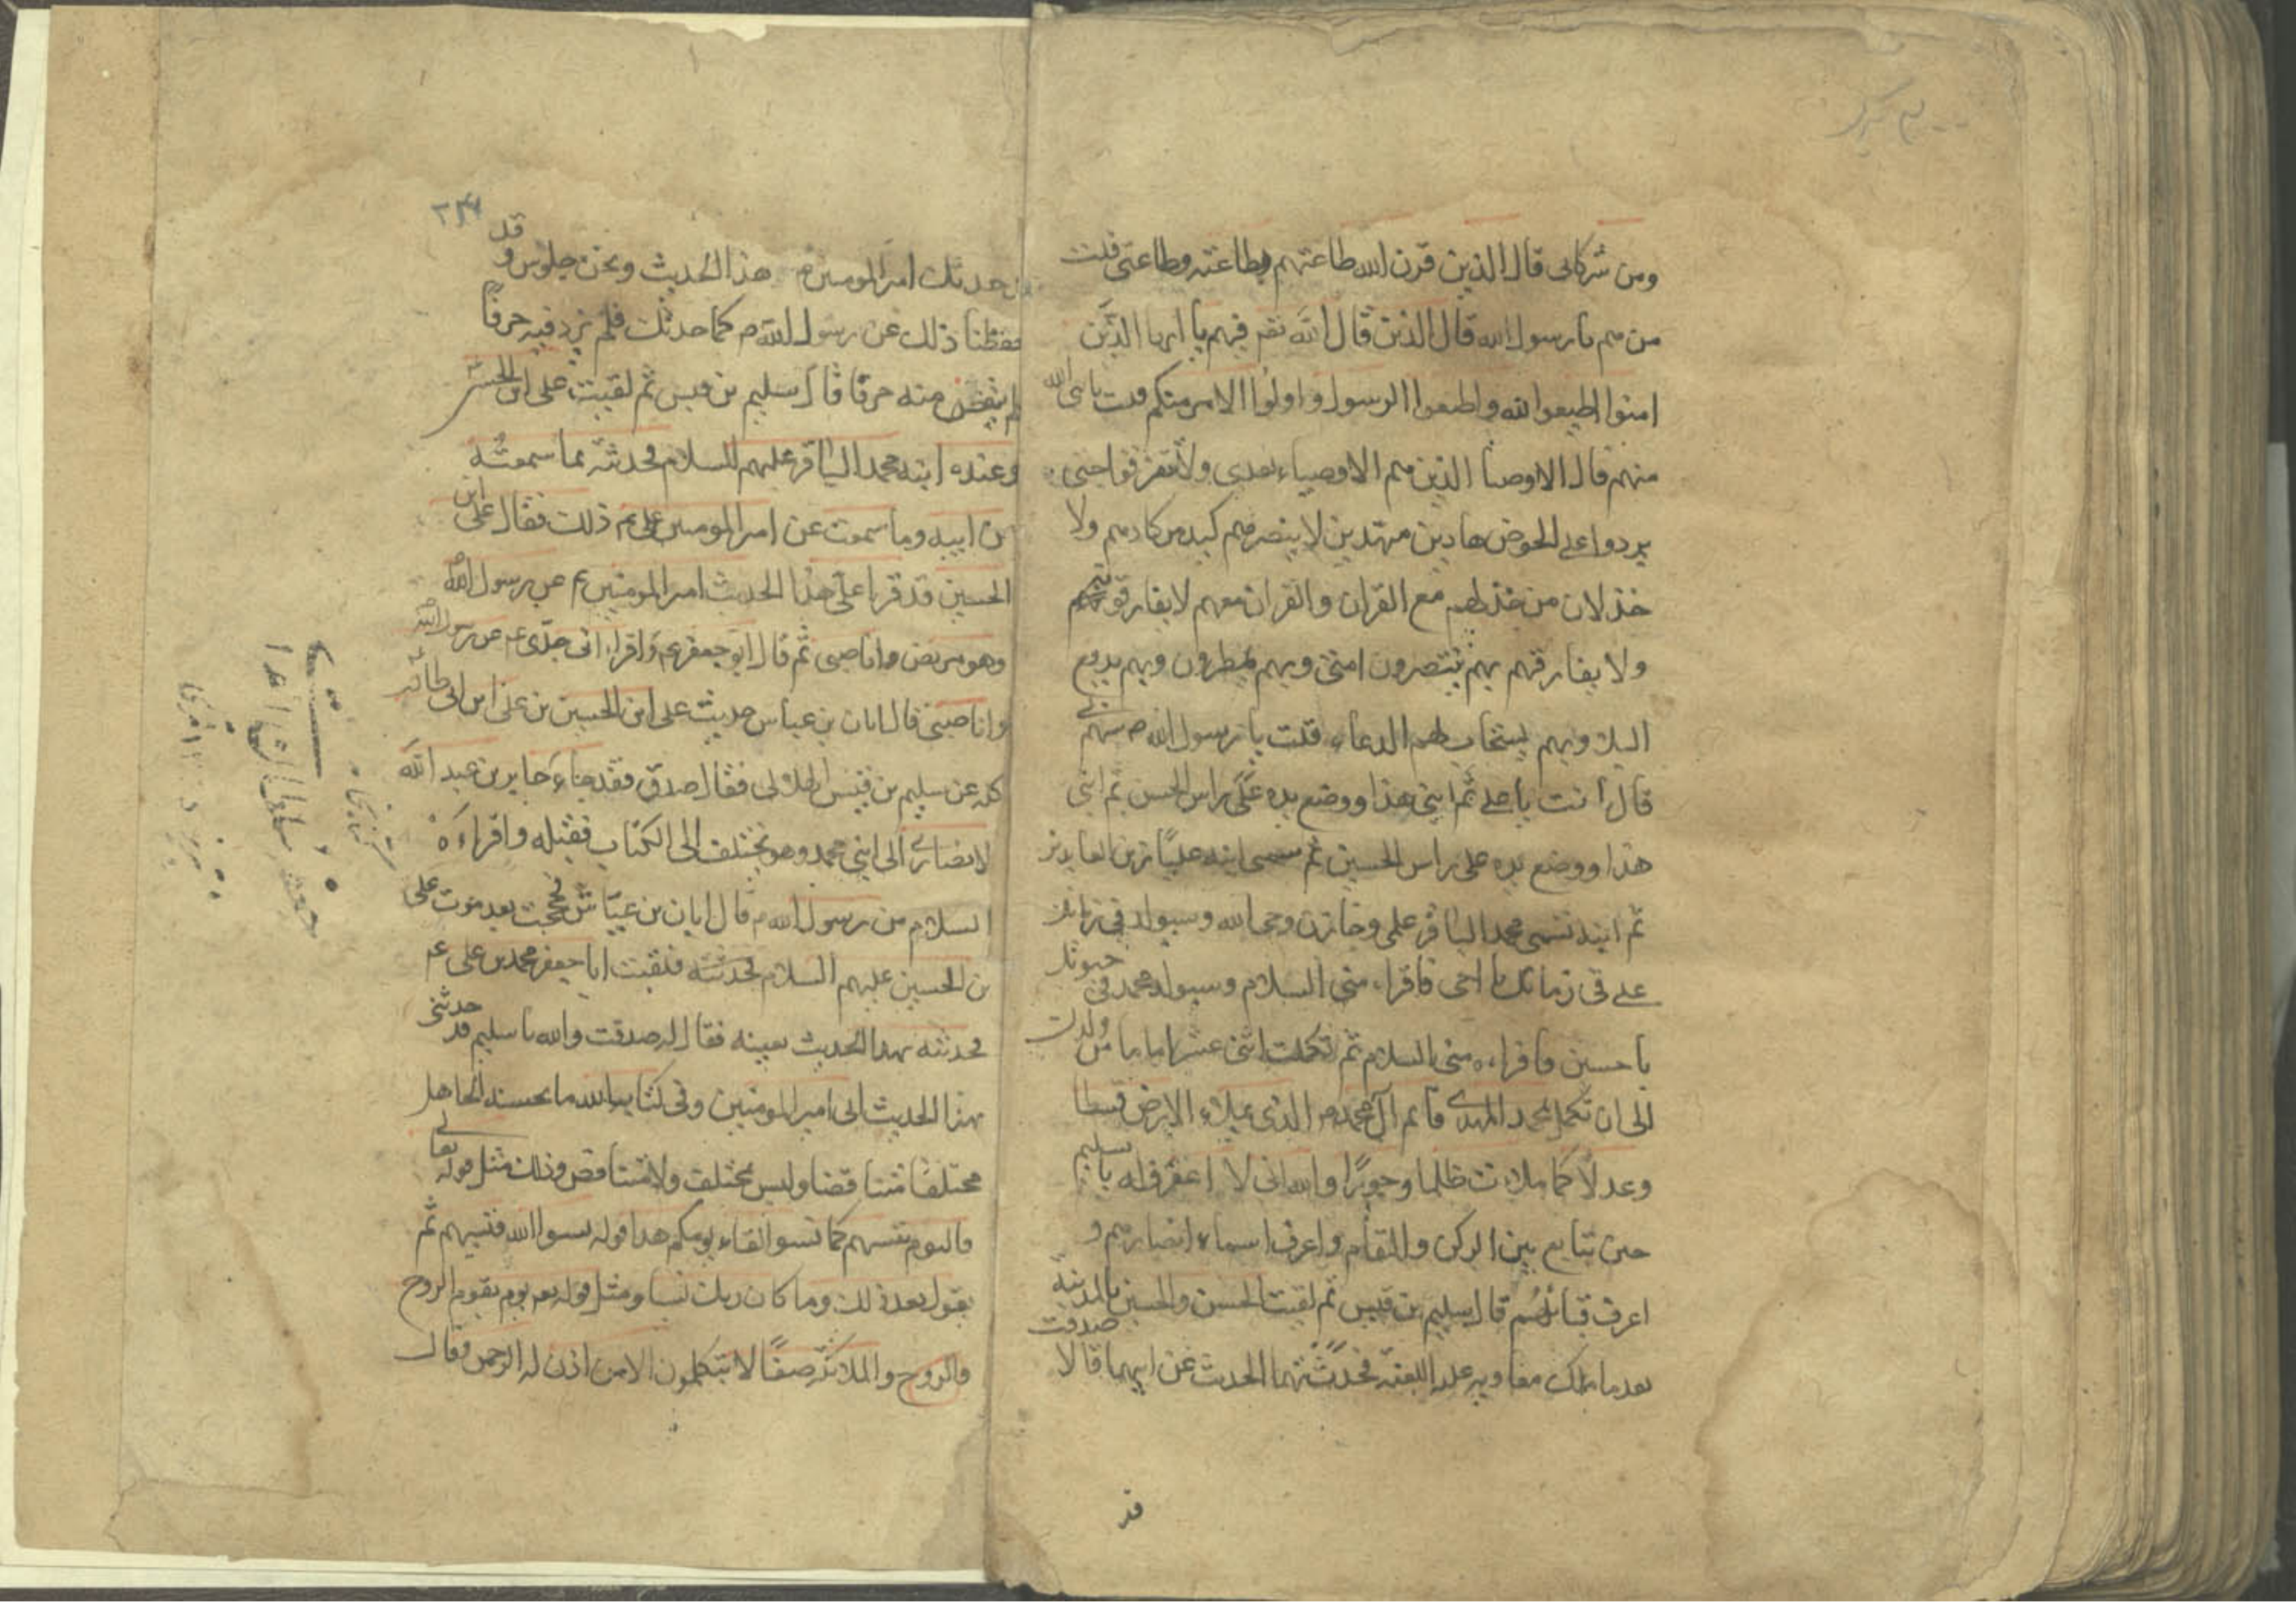 ومن شركائى قال الذين قرن الله طاعتهم بطاعته وطاعتى قلت
من هم يا رسول الله قال الذين قال الله فيهم يا ايها الذين
امنوا اطيعوا الله واطيعوا الرسول واولوا الامر منكم قلت يا نبى الله
منهم قال الاوصيا الذين هم الاوصياء بعدى ولا تفرقوا حتى
يردوا على الحوض هادين مهتدين لا يضرهم كيد من كادهم ولا
خذلان من خذلهم مع القران والقران معهم لا يفارقونه
ولا يفارقهم بهم ينتصرون امتى وبهم يمطرون وبهم يدفع
البلا وبهم يستجاب لهم الدعاء قلت يا رسول الله ص سمهم لى
قال انت يا على ثم ابنى هذا ووضع يده على راس الحسن ثم ابنى
هذا ووضع يده على راس الحسين ثم سمى ابنه عليا زين العابدين
ثم ابنه سمى محمد الباقر علمى وخازن وحى الله وسيولد فى زمانك
على فى زمانك يا اخى فاقراه منى السلام وسيولد محمد فى حيوتك
يا حسين فاقراءه منى السلام ثم تكملت اثنى عشر اماما من ولدك
الى ان تكمل محمد المهدى قائم آل محمد ص الذى يملاء الارض قسطا
وعدلا كما ملات ظلما وجورا والله انى لا اعرفه يا سليم
حين يتابع بين الركن والمقام واعرف اسماء انصارهم و
اعرف قبائلهم قال سليم بن قيس ثم لقيت الحسن والحسين بالمدينة
بعد ما ملك معاويه عليه اللعنة فحدثتهما الحديث عن ابيهما قالا صدقت
قد
٢٣٤
حدثك امير المومنين ع هذا الحديث ونحن جلوس وقد
حفظنا ذلك عن رسول الله ص كما حدثك فلم يزد فيه حرفا
ولم ينقض منه حرفا قال سليم بن قيس ثم لقيت على ابن الحسين
وعنده ابنه محمد الباقر عليهم السلام فحدثته بما سمعته
من ابيه وما سمعت عن امير المومنين على ع ذلك فقال على ابن
الحسين قد قراء على هذا الحديث امير المومنين ع عن رسول الله
وهو مريض وانا صبى ثم قال ابو جعفر ع واقراء انى جدى ع عن رسول الله
وانا صبى قال ابان بن عياش حديث على ابن الحسين بن على ابن ابى طالب
كله عن سليم بن قيس الهلالى فقال صدق فقد جاء جابر بن عبد الله
الانصارى الى ابنى محمد وهو يختلف الى الكتاب فقبله واقراءه
السلام من رسول الله ص قال ابان بن عياش فحججت بعد موت على
بن الحسين عليهم السلام فلقيت ابا جعفر محمد بن على ع
فحدثته بهذا الحديث بعينه فقال له صدقت والله يا سليم قد حدثنى
بهذا الحديث ابى امير المومنين وفى كتاب الله ما يحسبه الجاهل
مختلفا متناقضا وليس بمختلف ولا متناقض وذلك مثل قوله تعالى
فاليوم ننسيهم كما نسوا لقاء يومكم هذا قوله نسوا الله فنسيهم ثم
يقول بعد ذلك وما كان ربك نسيا ومثل قوله يوم يقوم الروح
والروح والملائكة صفا لا يتكلمون الا من اذن له الرحمن وقال